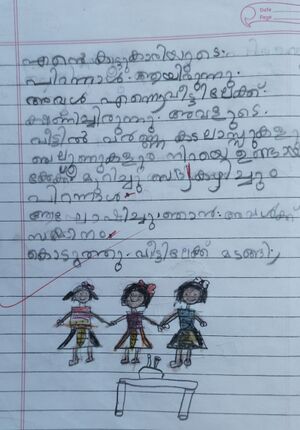 Date
Page
എന്റെ കൂട്ടുകാരിയുടെ
പിറന്നാൾ ആയിരുന്നു.
അവൾ എന്നെ വീട്ടിലേക്ക്
ക്ഷണിച്ചിരുന്നു. അവളുടെ
വീട്ടിൽ വർണ്ണ കടലാസുകളും
ബലൂണുകളും നിറയെ ഉണ്ടായി
കേക്ക് മുറിച്ചു സദ്യകഴിച്ചും
പിറന്നാൾ
ആഘോഷിച്ചു. ഞാൻ അവൾക്ക്
സമ്മാനം
കൊടുത്തു. വീട്ടിലേക്ക് മടങ്ങി.